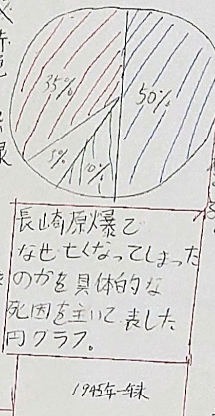 35%
50%
5%
10%
長崎原爆で
なぜ亡くなってしまった
のかを具体的な
死因を主いて表した
円グラフ。
1945年年末